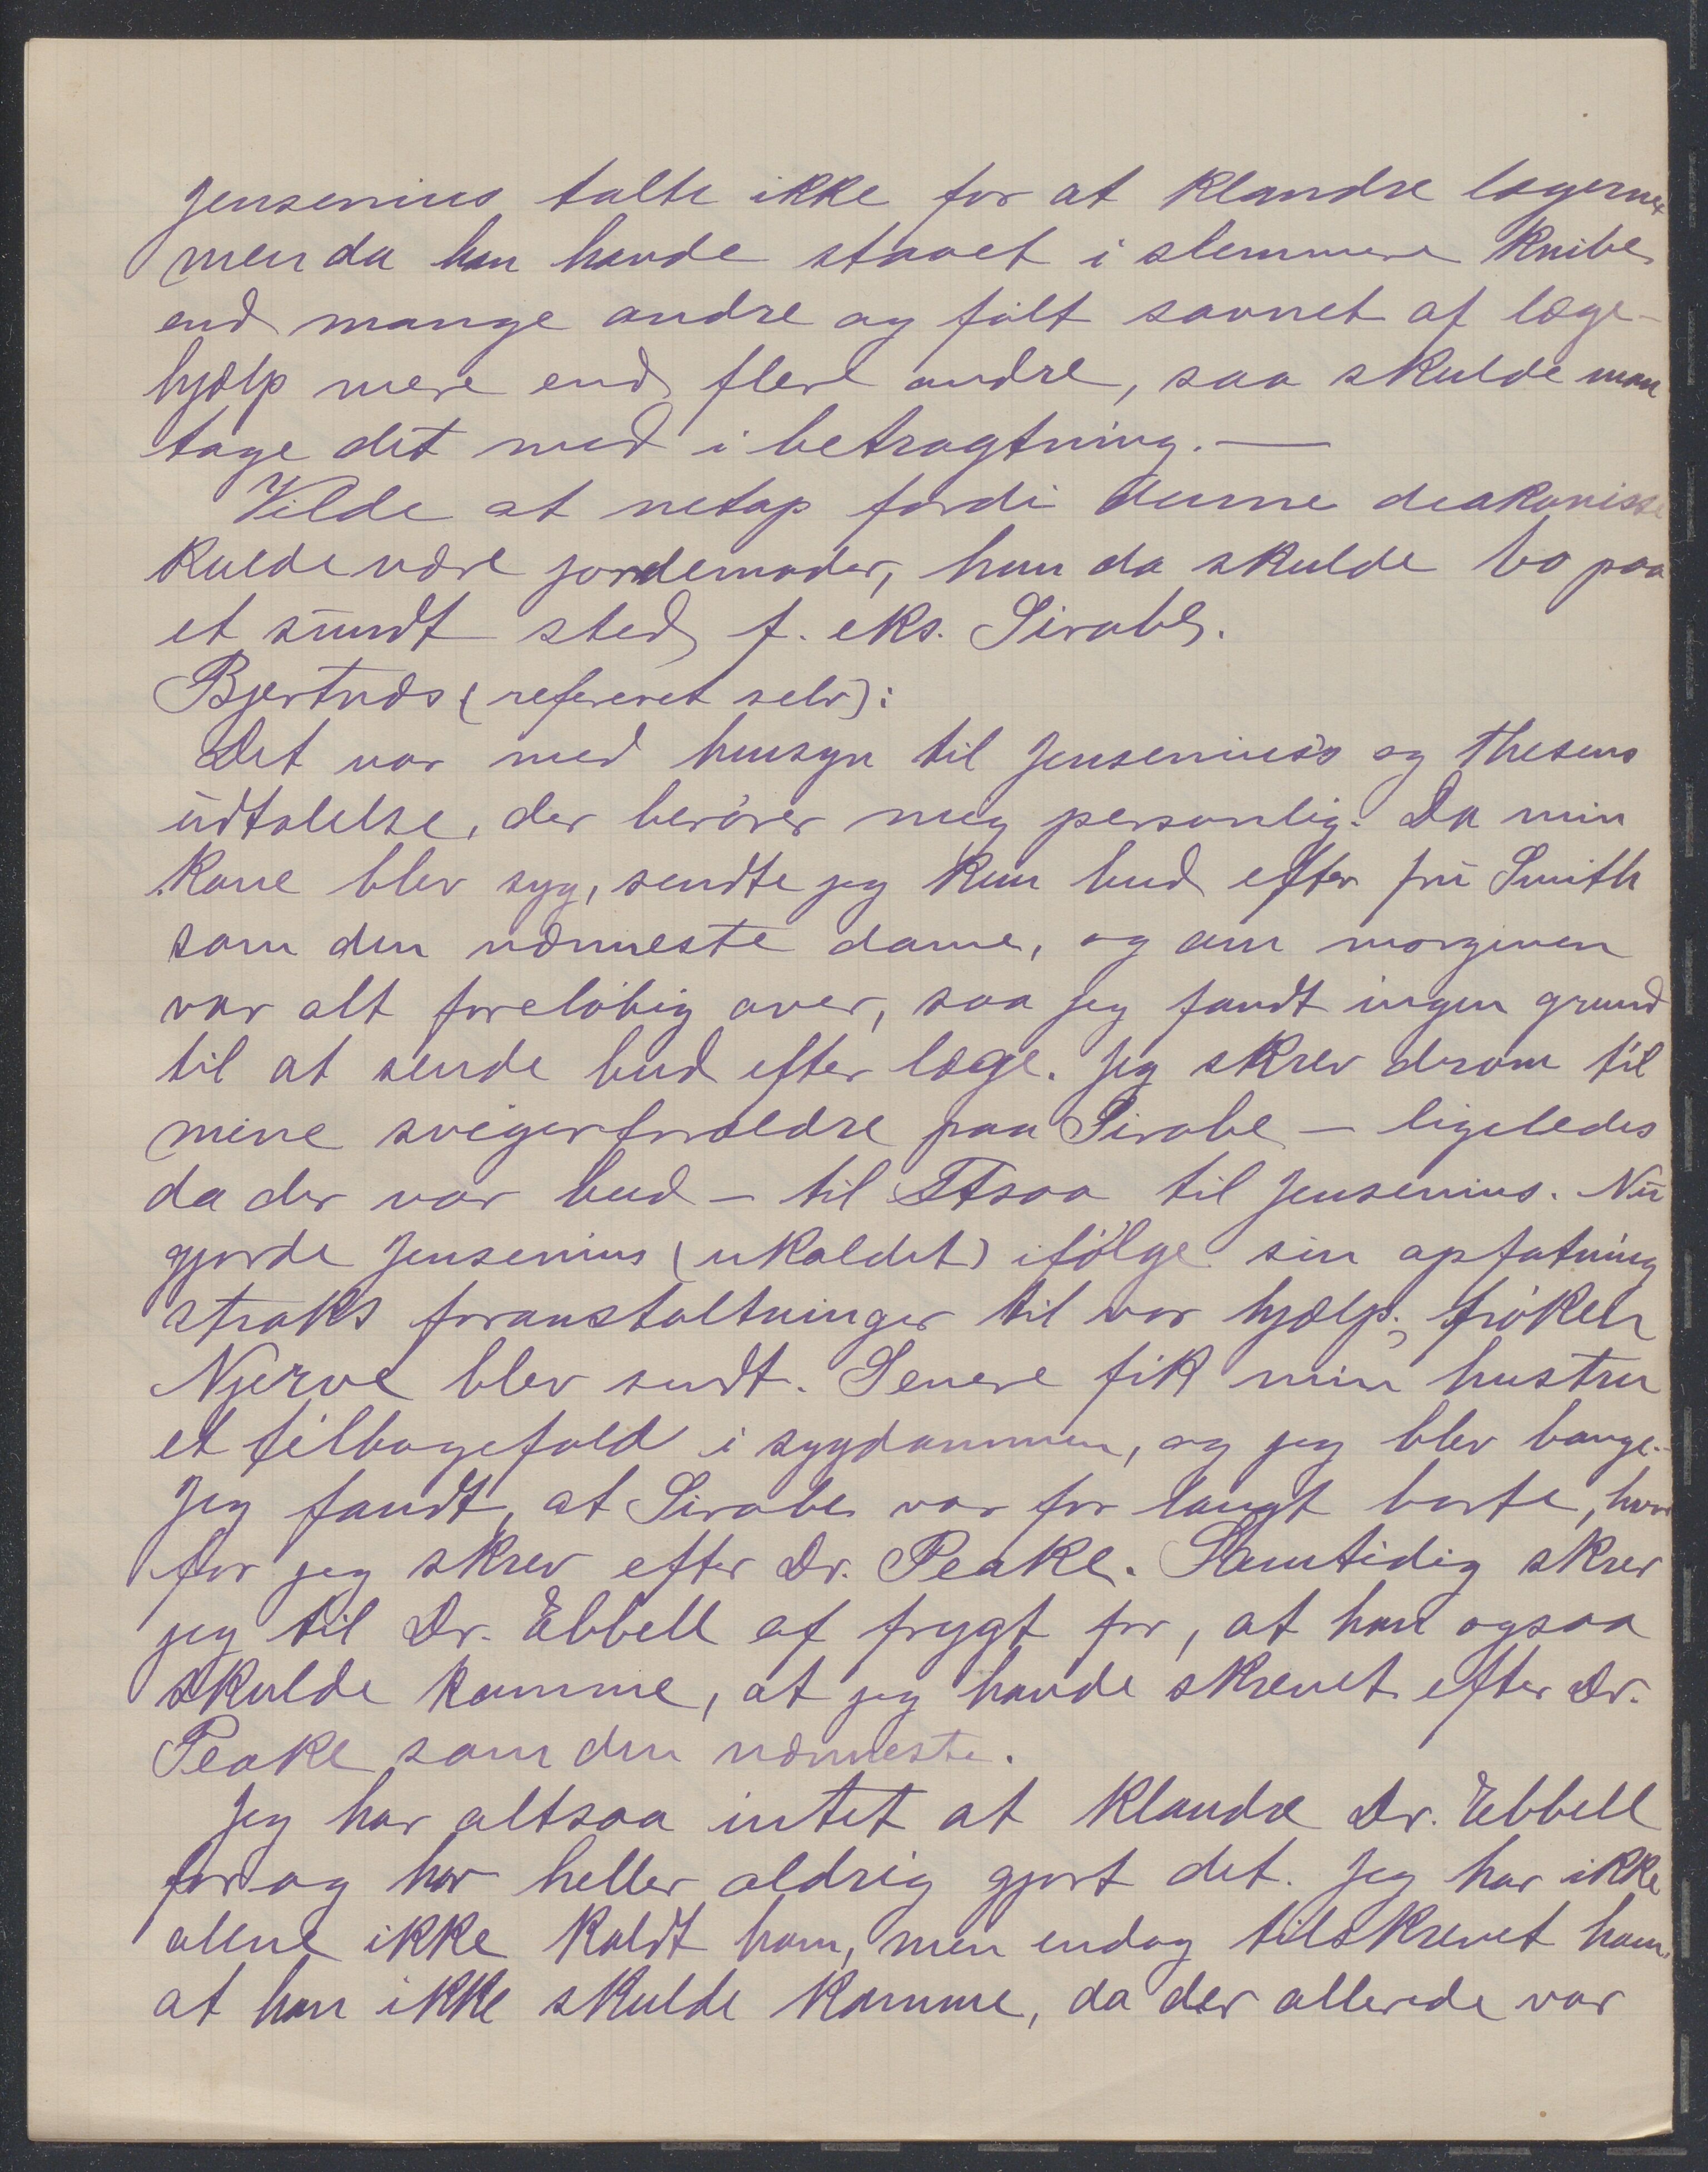 Jensenius talte ikke for at klandre lægerne,
men da han havde staaet i slemmere knibe
end mange andre og følt savnet af læge-
hjælp mere end flere andre, saa skulde man
tage det med i betragtning. —
Vilde at netop fordi denne diakonisse
kulde være jordemoder, hun da skulde bo paa
et sundt sted f. eks. Sirabe.
Bjertnæs (referert selv):
Det var med hensyn til Jensenius's og Thesens
udtalelse, der berører meg personlig. Da min
kone blev syg, sendte jeg kun bud efter fru Smith
som den nærmeste dame, og om morgenen
var alt foreløbig over, saa jeg fandt ingen grund
til at sende bud efter læge. Jeg skrev derom til
mine svigerforældre paa Sirabe – ligeledes
da der var bud – til Ilaka til Jensenius. Nu
gjorde Jensenius (ukaldet) ifølge sin opfatning
straks foranstaltninger til vor hjælp; frøken
Njerve blev sendt. Senere fik min hustru
et tilbagefald i sygdommen, og jeg blev bange.
Jeg fandt, at Sirabe var for langt borte, hvor
for jeg skrev efter Dr. Peake. Samtidig skrev
jeg til Dr. Ebbell af frygt for, at han ogsaa
skulde komme, at jeg havde skrevet efter Dr.
Peake som den nærmeste.
Jeg har altsaa intet at klandre Dr. Ebbell
for og har heller aldrig gjort det. Jeg har ikke
alene ikke kaldt ham, men endog tilskrevet ham,
at han ikke skulde komme, da der allerede var